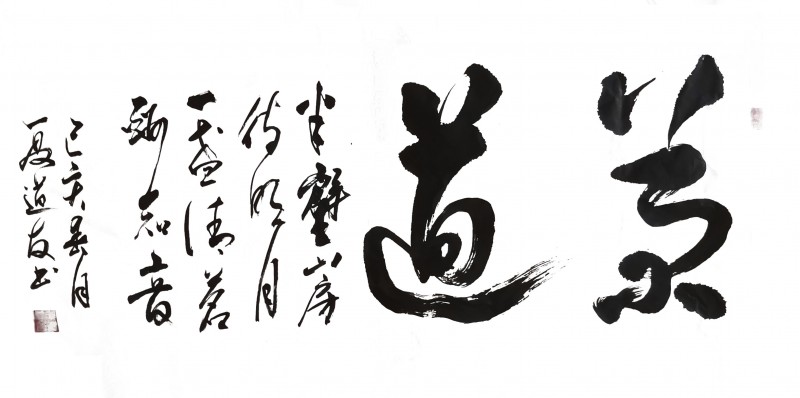 茶道
半壁山房
待明月
一盏清茗
酬知音
己亥 月
道友书